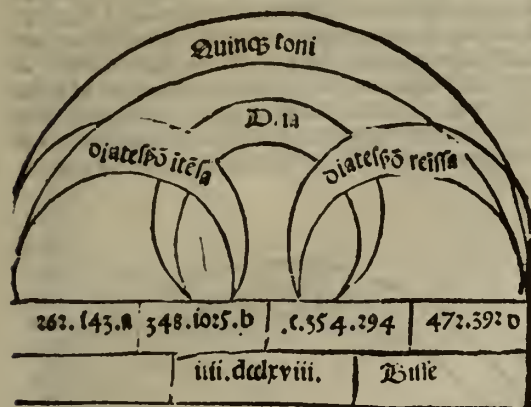 Quinqꝫ toni
D.ia
diatesſꝑō itēſa
diatesſꝑō reiſſa
262.143.a 348.1025.b .c.354.294 472.392 d
iiii.dcclxviii.